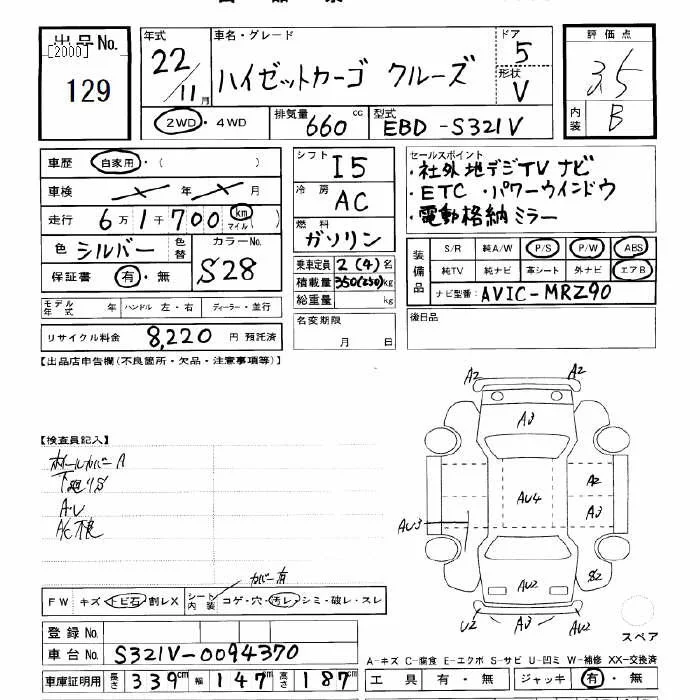 出品No.
[2000]
129
年式
22/11月
車名・グレード
ハイゼットカーゴ クルーズ
ドア
5
形状
V
評価点
3.5
内装
B
2WD・4WD
排気量
660 cc
型式
EBD-S321V
車歴 自家用・( )
車検 年 月
走行 6万1千700 km マイル( )
色 シルバー 色替
カラーNo.
S28
保証書 有・無
モデル年式 年 ハンドル 左・右 ディーラー・並行
リサイクル料金 8,220 円 預託済
シフト I5
冷房 AC
燃料
ガソリン
乗車定員 2(4)名
積載量 350(250)kg
総重量 kg
名変期限
月 日
セールスポイント
・社外 地デジTV ナビ
・ETC ・パワーウインドウ
・電動格納ミラー
装備品
S/R 純A/W P/S P/W ABS
純TV 純ナビ 革シート 外ナビ エアB
ナビ型番: AVIC-MRZ90
後日品
【出品店申告欄(不良箇所・欠品・注意事項等)】
【検査員記入】
ホールカバーA
下廻りS
AC横
A2
A2
A3
AU4
A2
A3
AU3
AU2
S2
U2
A3
AU2
スペア
カバー有
FW キズ トビ石 割レX
シート内装 コゲ・穴・汚レ・シミ・破レ・スレ
登録No.
車台No. S321V-0094370
車庫証明用 長さ 339cm 幅 147cm 高さ 187cm
A-キズ C-腐食 E-エクボ S-サビ U-凹ミ W-補修 XX-交換済
工具 有・無 ジャッキ 有・無